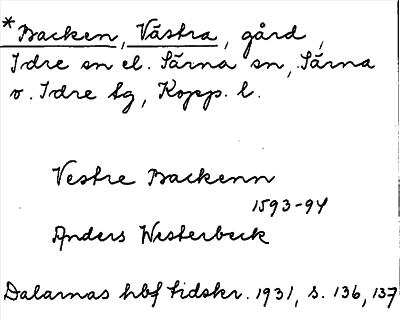 *Backen, Västra, gård,
Idre sn el. Särna sn, Särna
o. Idre tg, Kopp. l.
Vestre Backenn
1593-94
Anders Westerbeck
Dalarnas hbf tidskr. 1931, s. 136, 137